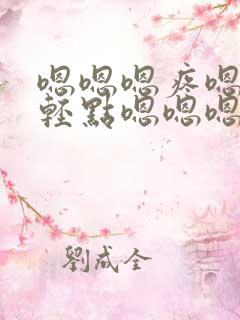 嗯嗯嗯疼嗯
輕點嗯嗯嗯
劉成全